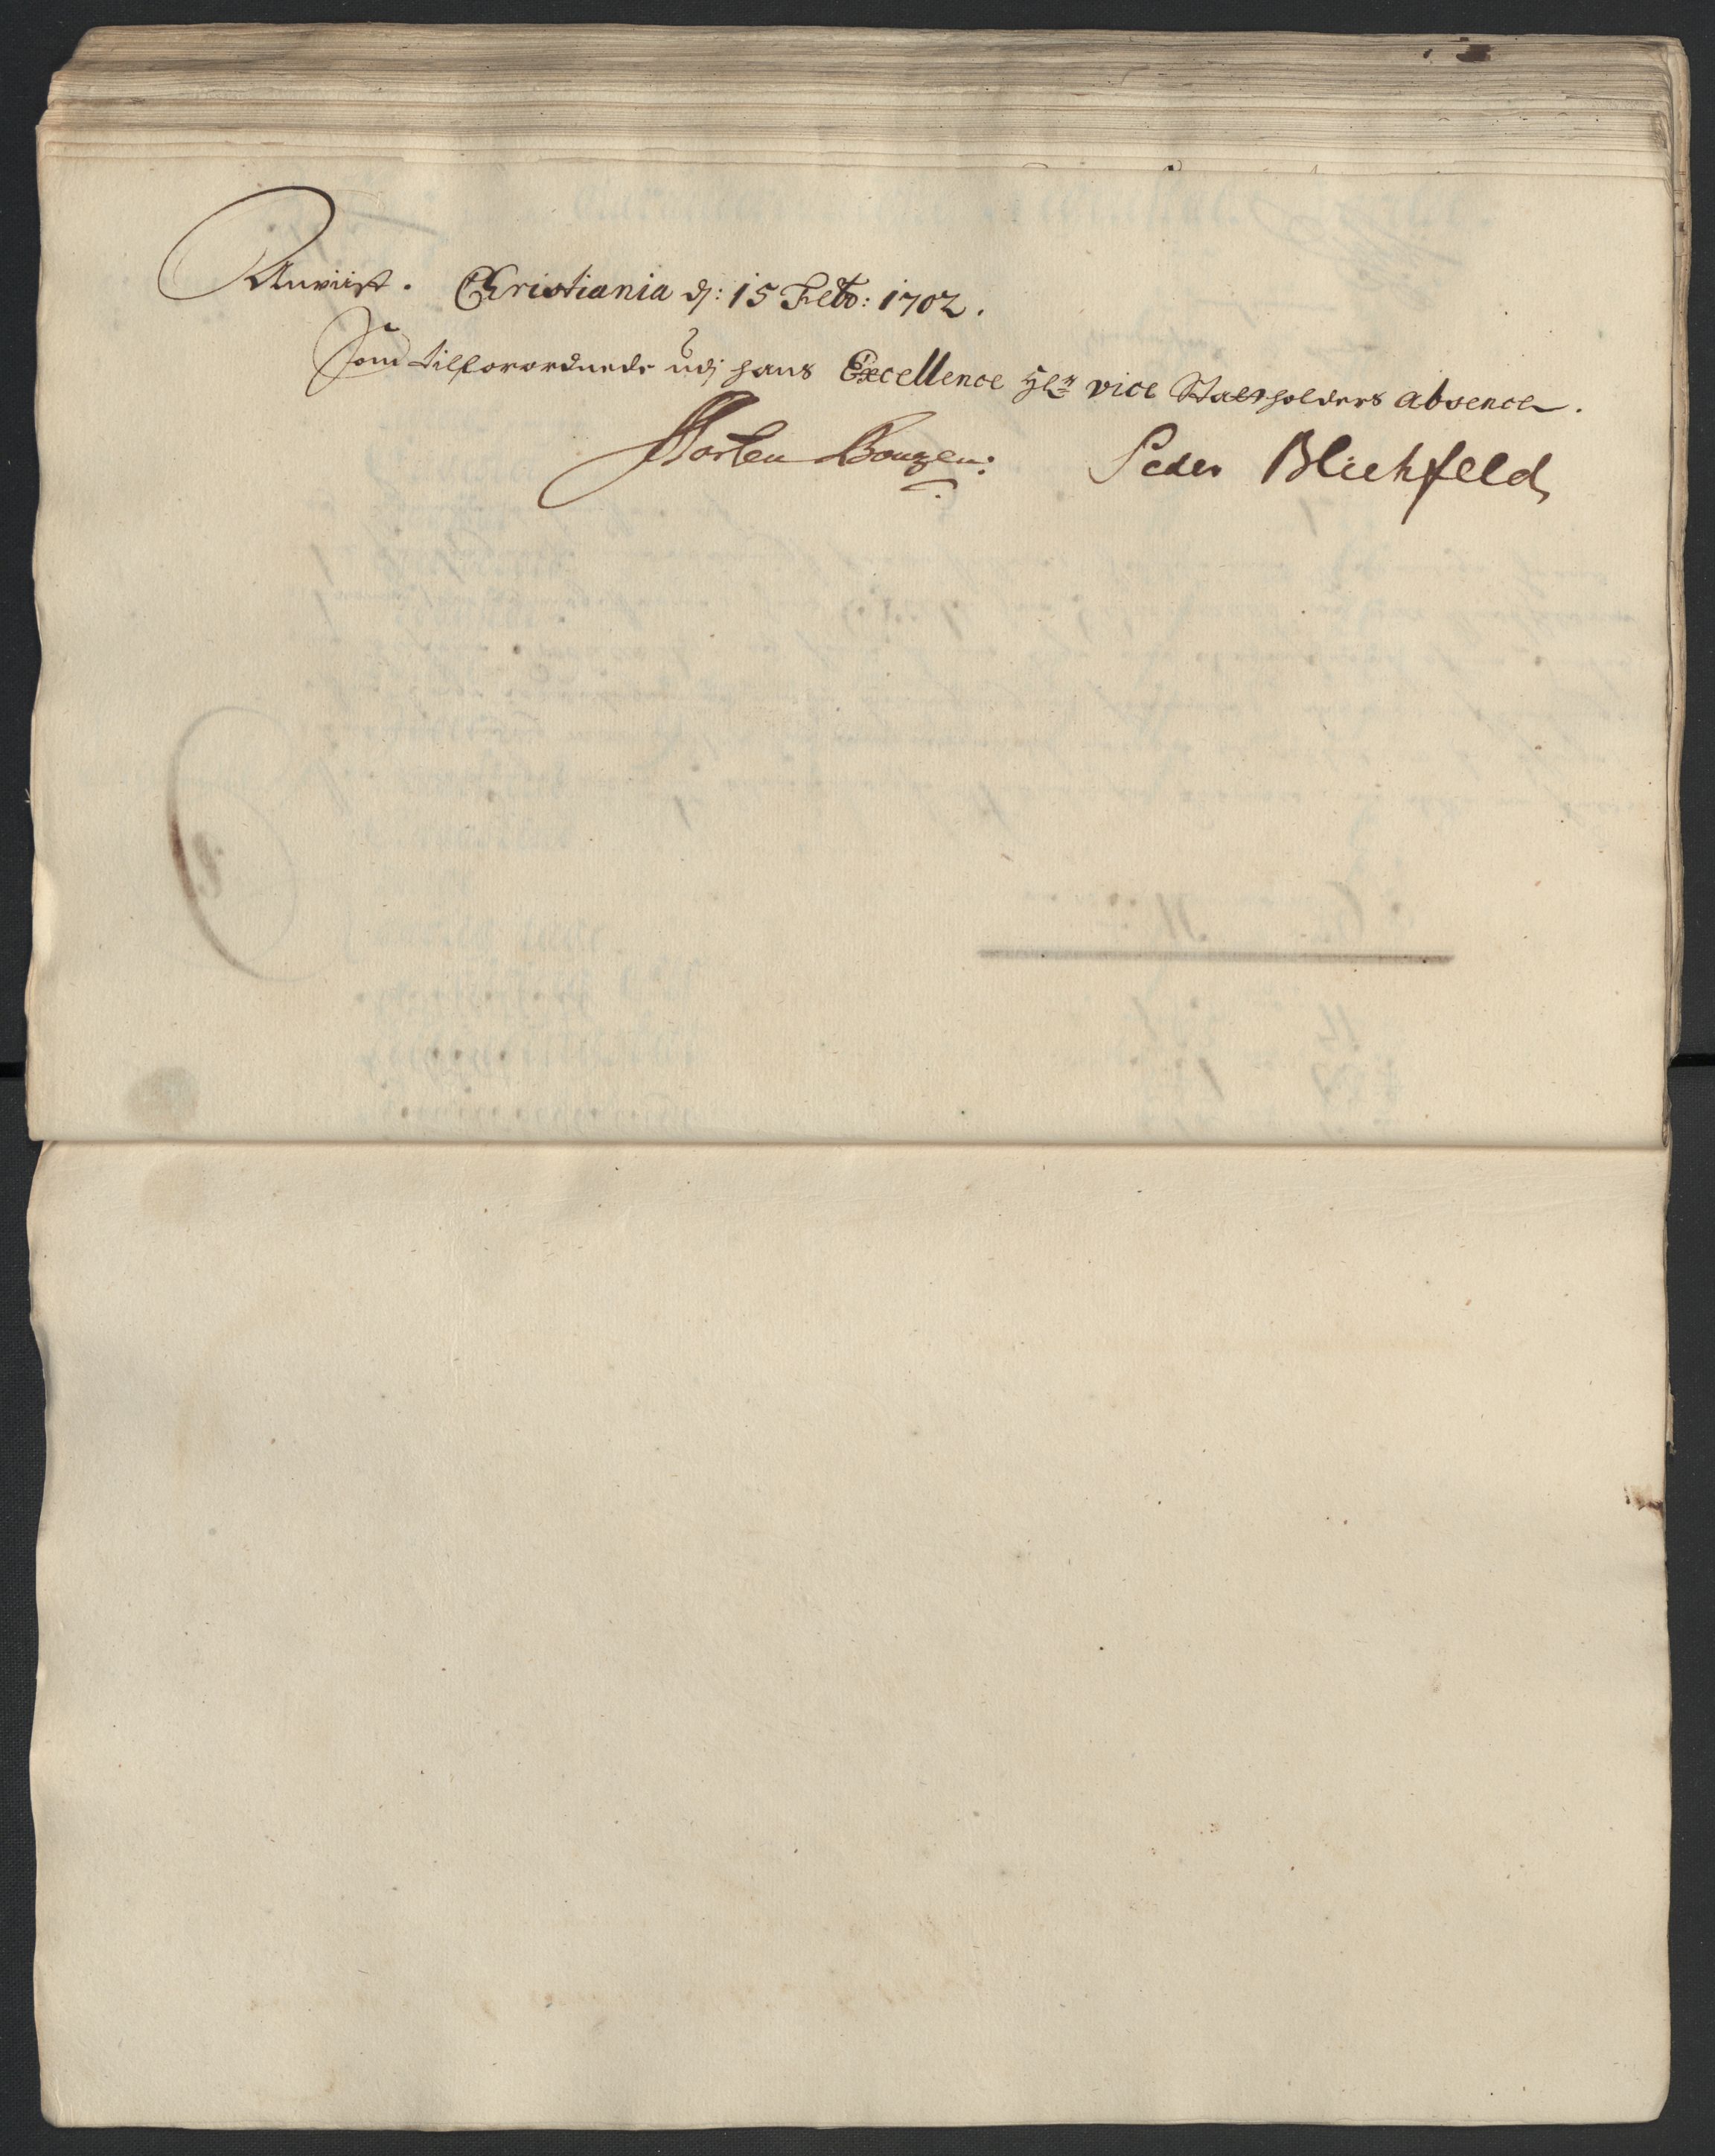 Anviist. Christiania dj: 15 Febr: 1702.
Som tilforordnede udj hans Excellence Hr. vice Stadtholders absence.
Morten Peder Blichfeld